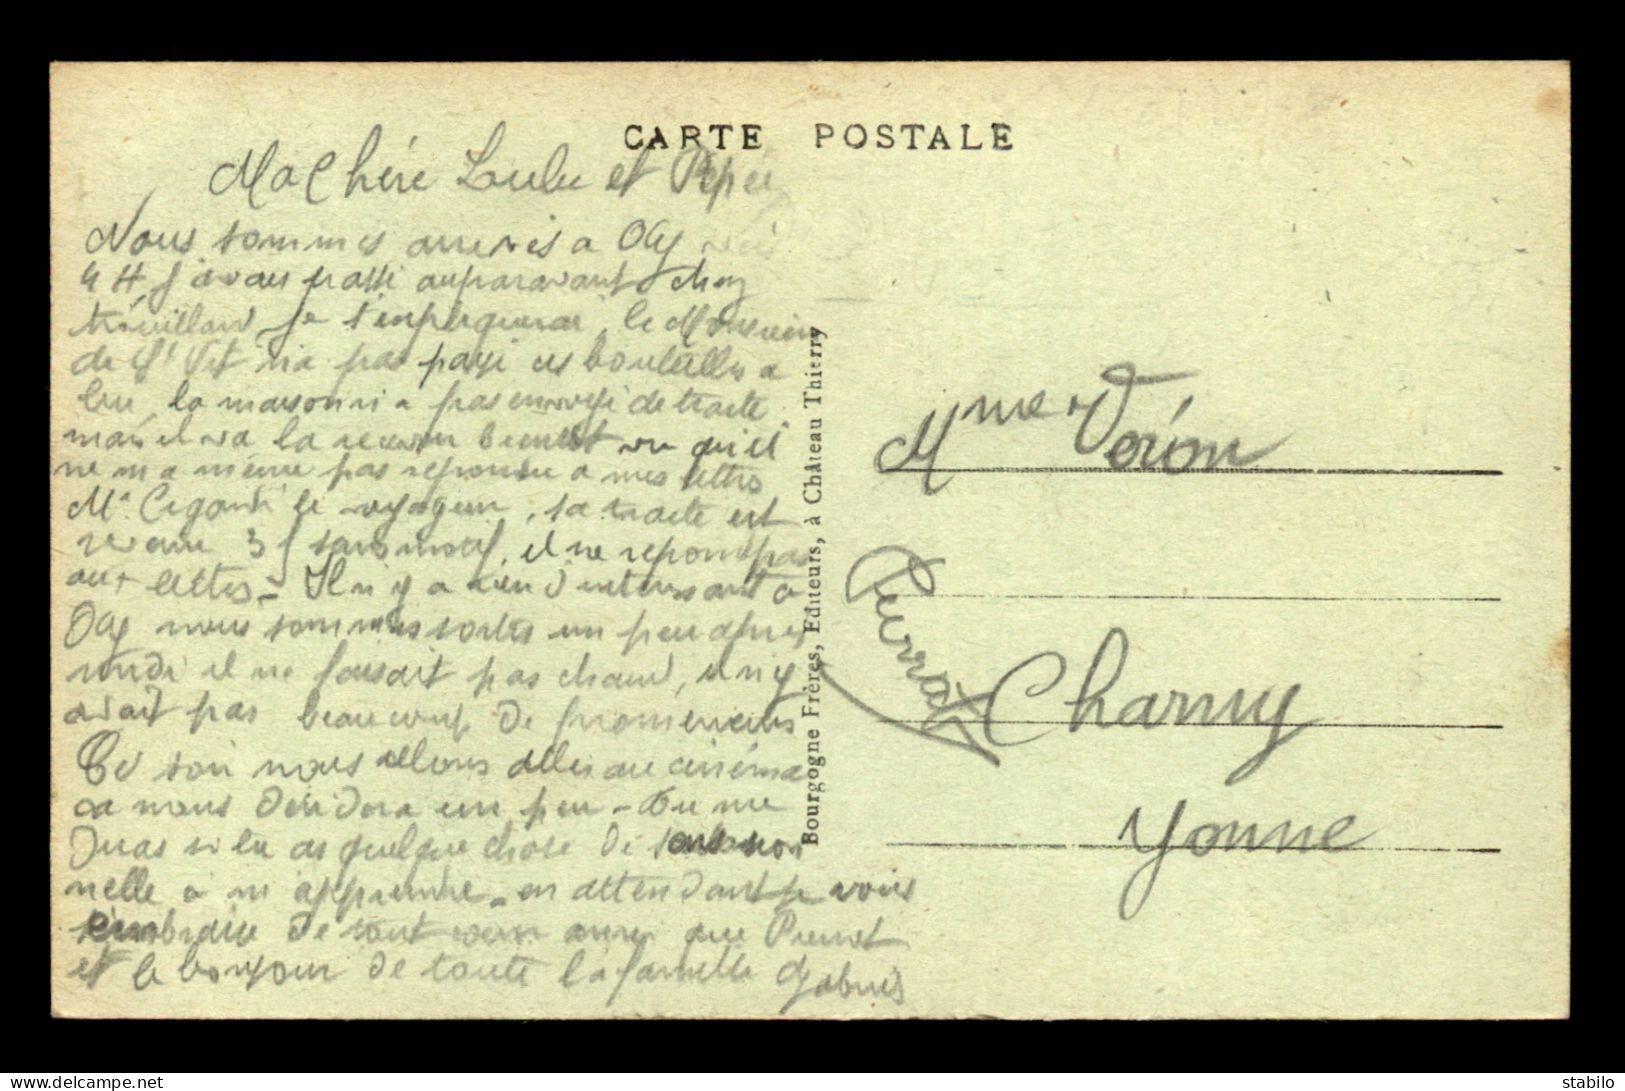 CARTE POSTALE
Ma Chére Loulu et Pépée
Nous sommes arrivés a Oly vers
4 H j'avais passé auparavant chez
je t'expliquerai, le Monsieur
de St Vit n'a pas payé ces bouteilles a
lui, la maison n'a pas envoyé de traite
mais il va la recevoir bientôt vu qu'il
ne m'a même pas repondu a mes lettres
Mr le voyageur, sa traite est
revenue 3 f sans motif, il ne repond pas
aux lettres - Il n'y a rien d'interessant a
Oly nous sommes sortis un peu apres
midi il ne faisait pas chaud, il n'y
avait pas beaucoup de promeneurs
Ce soir nous allons aller au cinéma
ca nous deridera un peu - Tu me
diras si tu as quelque chose de sensasion
nelle a m'apprendre - en attendant je vous
embrasse de tout coeur ainsi que Pierrot
et le bonjour de toute la famille
Bourgogne Frères, Editeurs, à Château Thierry
Mme Véron
Pierrot
Charny
Yonne
stabilo